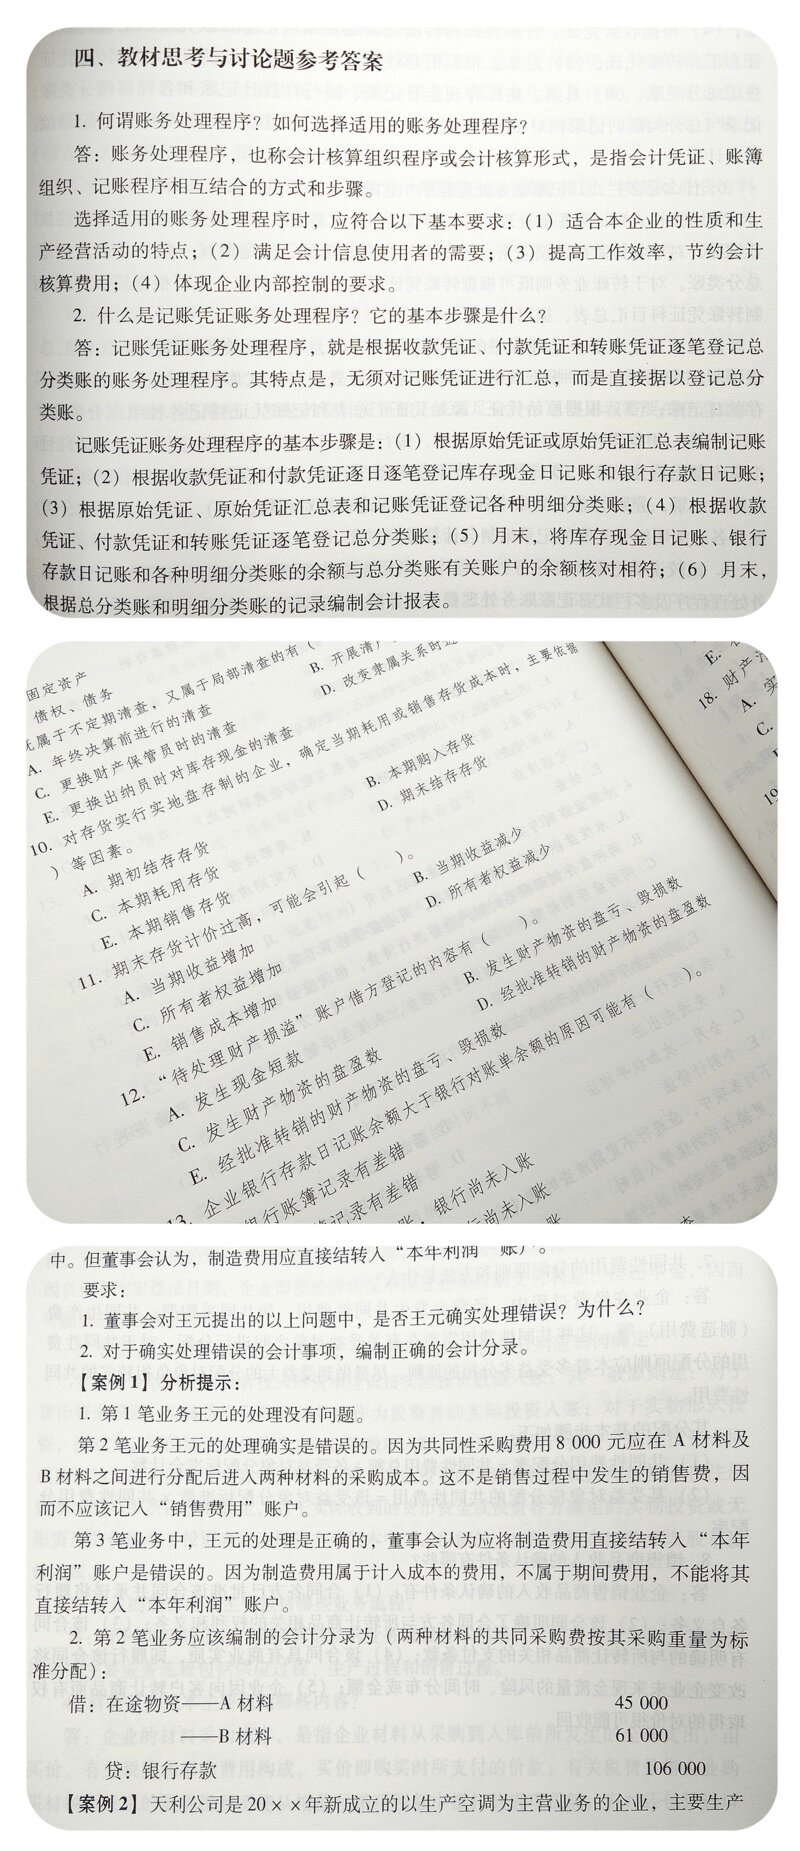 四、教材思考与讨论题参考答案
1. 何谓账务处理程序？如何选择适用的账务处理程序？
答：账务处理程序，也称会计核算组织程序或会计核算形式，是指会计凭证、账簿
组织、记账程序相互结合的方式和步骤。
选择适用的账务处理程序时，应符合以下基本要求：（1）适合本企业的性质和生
产经营活动的特点；（2）满足会计信息使用者的需要；（3）提高工作效率，节约会计
核算费用；（4）体现企业内部控制的要求。
2. 什么是记账凭证账务处理程序？它的基本步骤是什么？
答：记账凭证账务处理程序，就是根据收款凭证、付款凭证和转账凭证逐笔登记总
分类账的账务处理程序。其特点是，无须对记账凭证进行汇总，而是直接据以登记总分
类账。
记账凭证账务处理程序的基本步骤是：（1）根据原始凭证或原始凭证汇总表编制记账
凭证；（2）根据收款凭证和付款凭证逐日逐笔登记库存现金日记账和银行存款日记账；
（3）根据原始凭证、原始凭证汇总表和记账凭证登记各种明细分类账；（4）根据收款
凭证、付款凭证和转账凭证逐笔登记总分类账；（5）月末，将库存现金日记账、银行
存款日记账和各种明细分类账的余额与总分类账有关账户的余额核对相符；（6）月末，
根据总分类账和明细分类账的记录编制会计报表。
固定资产
债权、债务
属于不定期清查，又属于局部清查的有（
A. 年终决算前进行的清查 B. 开展清产
C. 更换财产保管员时的清查 D. 改变隶属关系时
E. 更换出纳员时对库存现金的清查
10. 对存货实行实地盘存制的企业，确定当期耗用或销售存货成本时，主要依据
（ ）等因素。
A. 期初结存存货 B. 本期购入存货
C. 本期耗用存货 D. 期末结存存货
E. 本期销售存货
11. 期末存货计价过高，可能会引起（ ）。
A. 当期收益增加 B. 当期收益减少
C. 所有者权益增加 D. 所有者权益减少
E. 销售成本增加
12. “待处理财产损溢”账户借方登记的内容有（ ）。
A. 发生现金短款 B. 发生财产物资的盘亏、毁损数
C. 发生财产物资的盘盈数 D. 经批准转销的财产物资的盘盈数
E. 经批准转销的财产物资的盘亏、毁损数
13. 企业银行存款日记账余额大于银行对账单余额的原因可能有（ ）。
银行账簿记录有差错
记录有差错
账，银行尚未入账
尚未入账
18. 财产
A. 实
C.
19
中。但董事会认为，制造费用应直接结转入“本年利润”账户。
要求：
1. 董事会对王元提出的以上问题中，是否王元确实处理错误？为什么？
2. 对于确实处理错误的会计事项，编制正确的会计分录。
【案例1】分析提示：
1. 第1笔业务王元的处理没有问题。
第2笔业务王元的处理确实是错误的。因为共同性采购费用8 000元应在A材料及
B材料之间进行分配后进入两种材料的采购成本。这不是销售过程中发生的销售费，因
而不应该记入“销售费用”账户。
第3笔业务中，王元的处理是正确的，董事会认为应将制造费用直接结转入“本年
利润”账户是错误的。因为制造费用属于计入成本的费用，不属于期间费用，不能将其
直接结转入“本年利润”账户。
2. 第2笔业务应该编制的会计分录为（两种材料的共同采购费按其采购重量为标
准分配）：
借：在途物资——A材料 45 000
——B材料 61 000
贷：银行存款 106 000
【案例2】天利公司是20××年新成立的以生产空调为主营业务的企业，主要生产